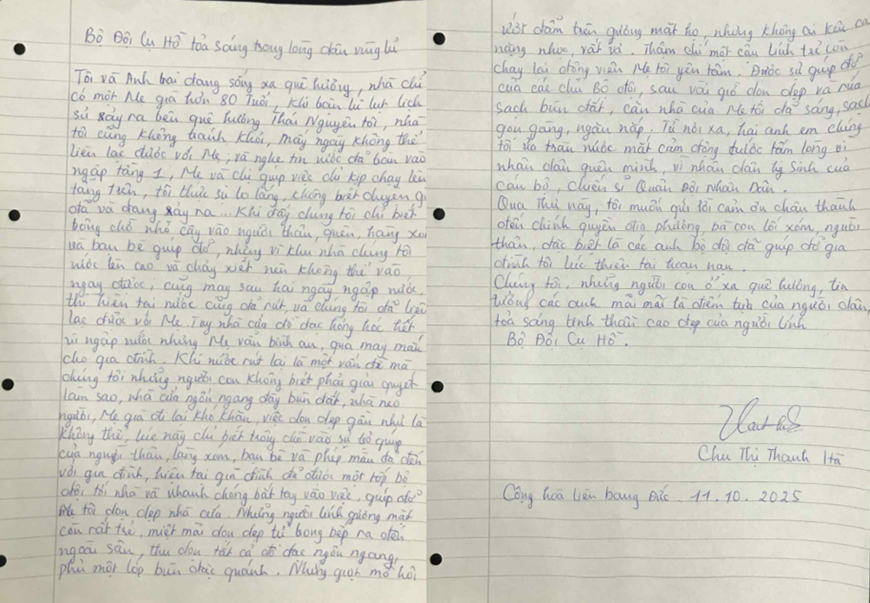 Bộ Đội Cụ Hồ tỏa sáng trong lòng dân vùng lũ
Tôi và Anh trai đang sống xa quê hương, nhà chỉ
có một Mẹ già hơn 80 Tuổi, khi trận lũ lụt lịch
sử xảy ra trên quê hương Thái Nguyên tôi, nhà
tôi cũng không tránh khỏi, mấy ngày không thể
liên lạc được với Mẹ, và nghe tin nước đã tràn vào
ngập tầng 1, Mẹ và chị giúp việc chỉ kịp chạy lên
tầng trên, tôi thực sự lo lắng, không biết chuyện gì
đã và đang xảy ra... Khi đấy chúng tôi chỉ biết
trông chờ nhờ cậy vào người thân, quen, hàng xó
và bạn bè giúp đỡ, nhưng vì khu nhà chúng tôi
nước lên cao và chảy xiết nên không thể vào
ngay được, cũng may sau hai ngày ngập nước
thì hiện tại nước cũng đã rút, và chúng tôi đã liên
lạc được với Mẹ. Tuy nhà cửa đồ đạc hỏng hóc hết
vì ngập nước nhưng Mẹ vẫn bình an, quả may mắn
cho gia đình. Khi nước rút lại là một vấn đề mà
chúng tôi những người con không biết phải giải quyết
làm sao, nhà cửa ngổn ngang đầy bùn đất, nhà neo
người, Mẹ già đi lại khó khăn, việc dọn dẹp gần như là
không thể, lúc này chỉ biết trông chờ vào sự trợ giúp
của người thân, làng xóm, bạn bè và phép màu đã đến
với gia đình, hiện tại gia đình đã được một tốp bộ
đội tới nhà và nhanh chóng bắt tay vào việc, giúp đỡ
Mẹ tôi dọn dẹp nhà cửa. Những người lính gương mặt
còn rất trẻ, miệt mài dọn dẹp từ trong bếp ra đến
ngoài sân, thu dọn tất cả đồ đạc ngổn ngang,
phủ một lớp bùn đặc quánh. Những giọt mồ hôi
ướt đẫm trên gương mặt họ, nhưng không ai kêu ca
nặng nhọc, vất vả. Thậm chí một cậu lính trẻ còn
chạy lại động viên Mẹ tôi yên tâm. Được sự giúp đỡ
của các chú Bộ đội, sau vài giờ dọn dẹp và rửa
sạch bùn đất, căn nhà của Mẹ tôi đã sáng, sạch
gọn gàng, ngăn nắp. Từ nơi xa, hai anh em chúng
tôi ứa tràn nước mắt cảm động trước tấm lòng vì
nhân dân quên mình, vì nhân dân hy sinh của
cán bộ, chiến sĩ Quân Đội Nhân Dân.
Qua Thư này, tôi muốn gửi lời cảm ơn chân thành
đến chính quyền địa phương, bà con lối xóm, người
thân, đặc biệt là các anh bộ đội đã giúp đỡ gia
đình tôi lúc thiên tai hoạn nạn.
Chúng tôi, những người con ở xa quê hương, tin
tưởng các anh mãi mãi là điểm tựa của người dân,
tỏa sáng tinh thần cao đẹp của người lính
Bộ Đội Cụ Hồ.
Chu Thị Thanh Hà
Cộng hòa liên bang Đức. 11.10.2025